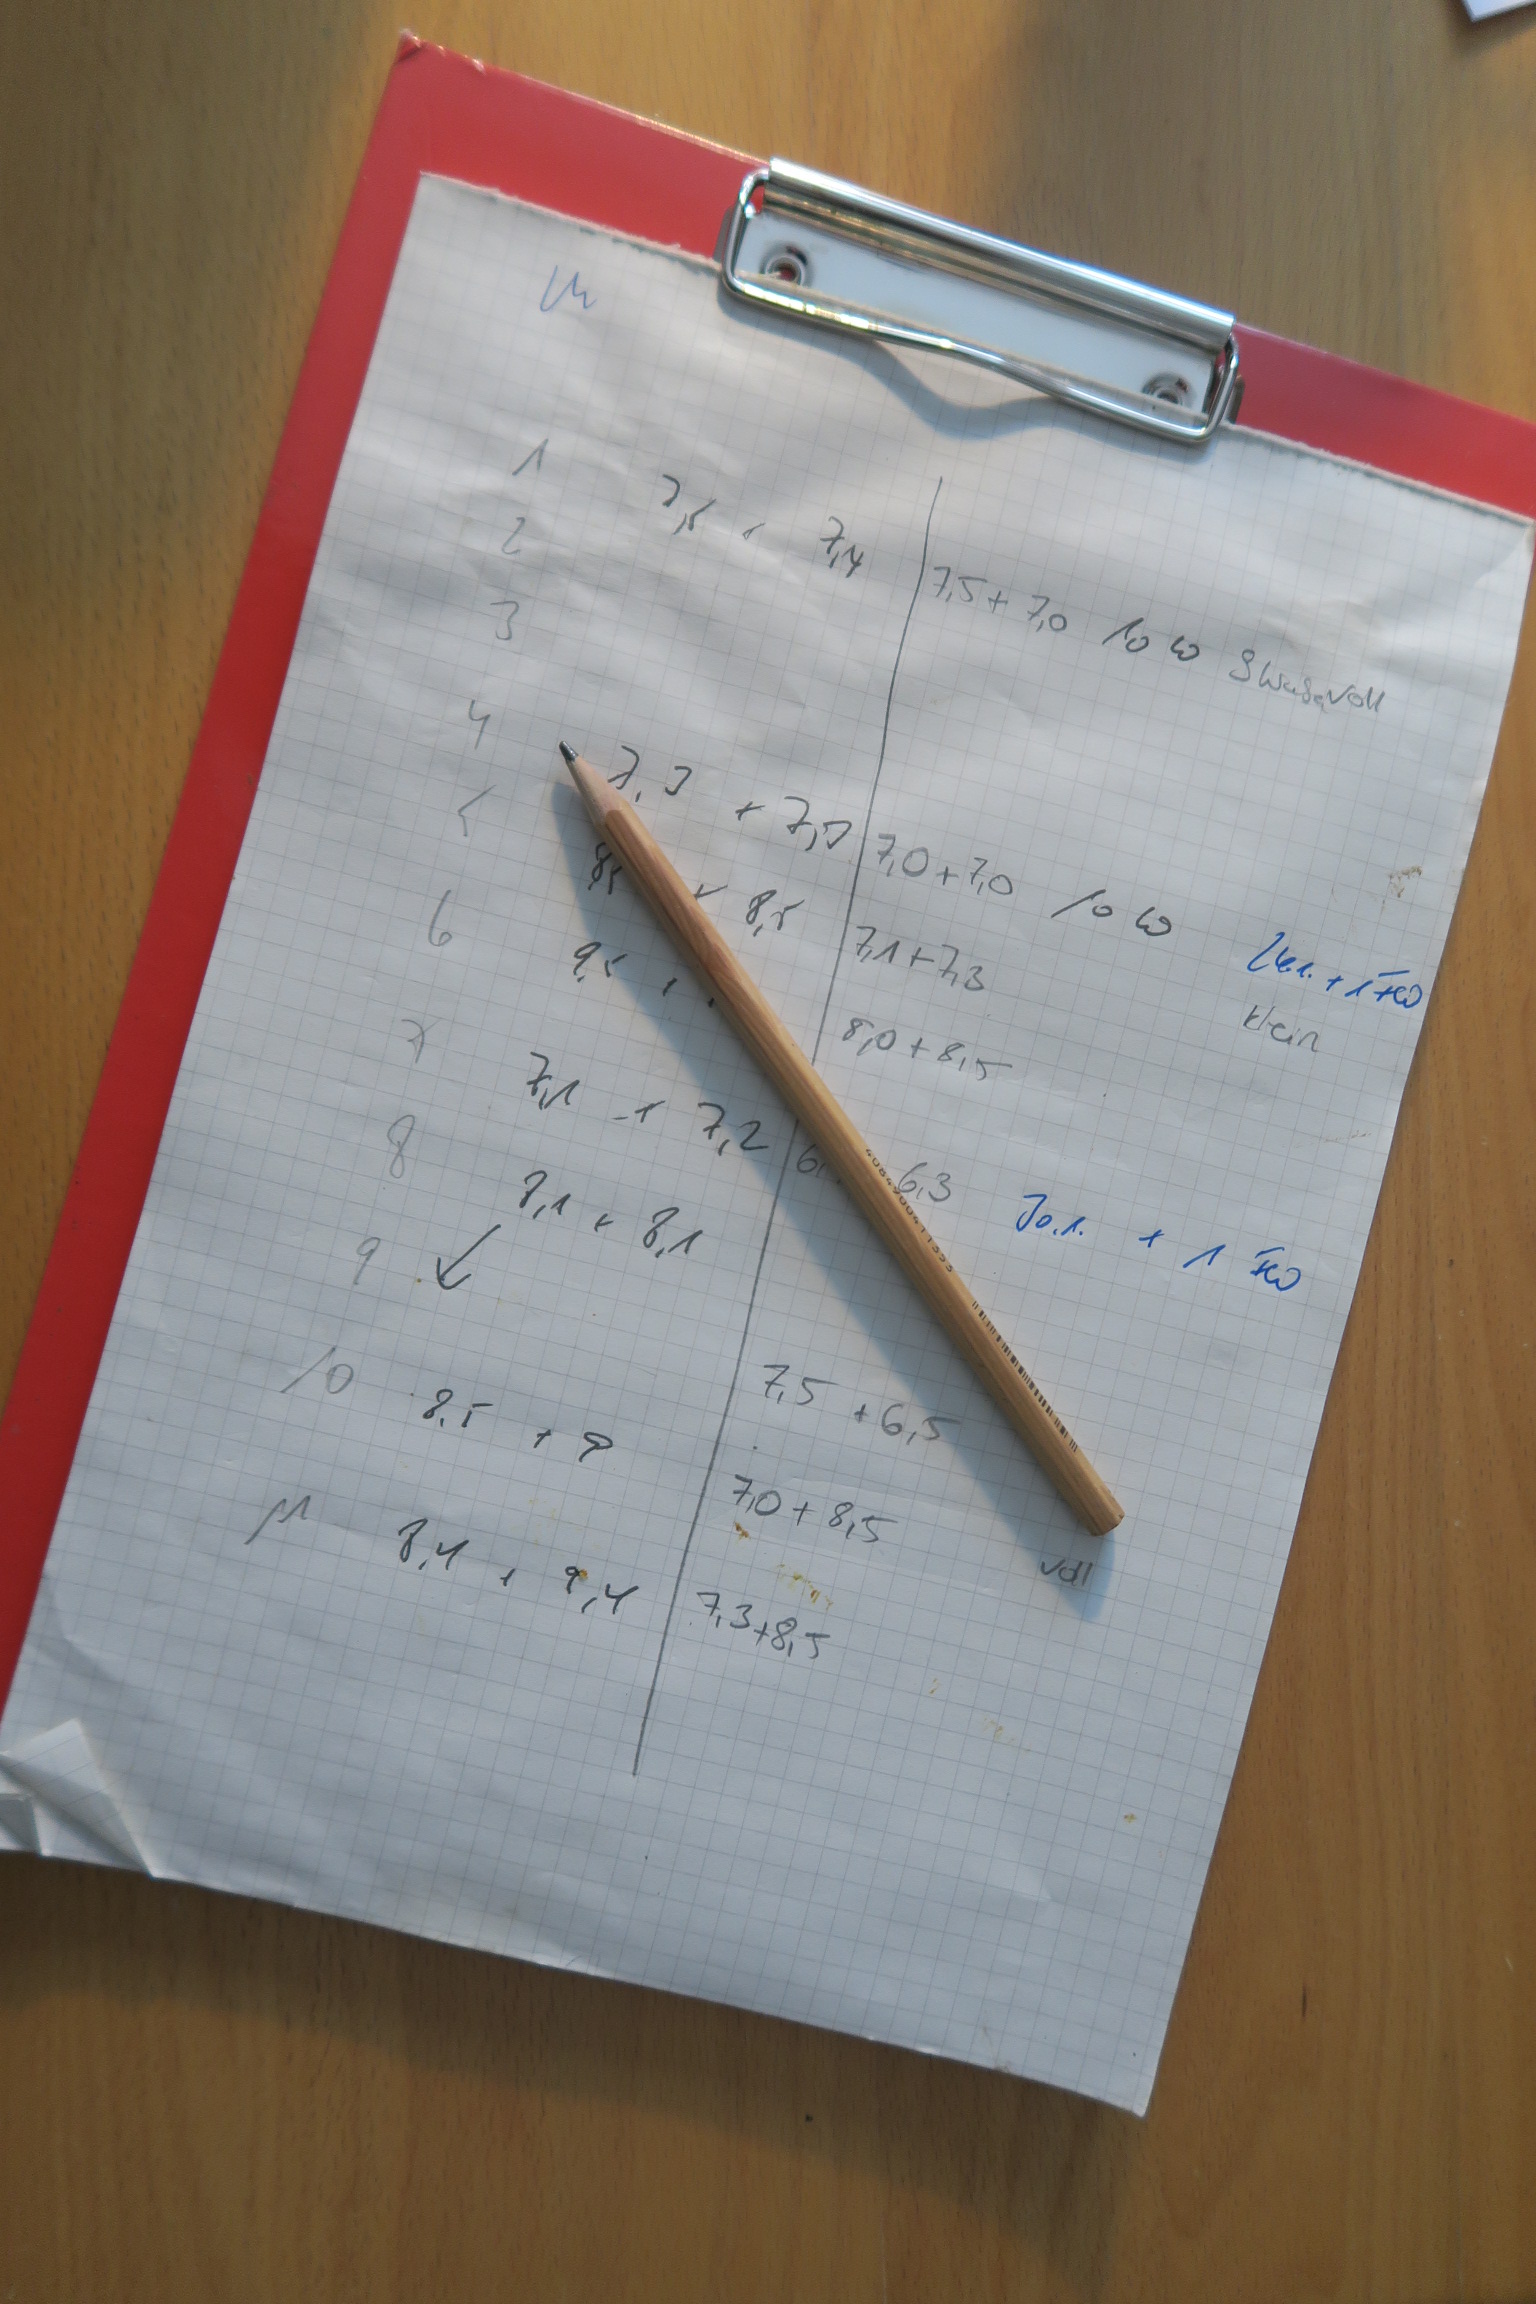 1 7,5 + 7,4
2 7,5 + 7,0 10
3
4 7,3 + 7,5 7,0 + 7,0 10
5 8,5 + 8,5 7,1 + 7,3
6 9,5 + 8,0 + 8,5 klein
7 7,1 + 7,2 6, 6,3
8 8,1 + 8,1 + 1
9
10 8,5 + 9 7,5 + 6,5
7,0 + 8,5
11 8,4 + 9,4 7,3 + 8,5 voll
4084900411353